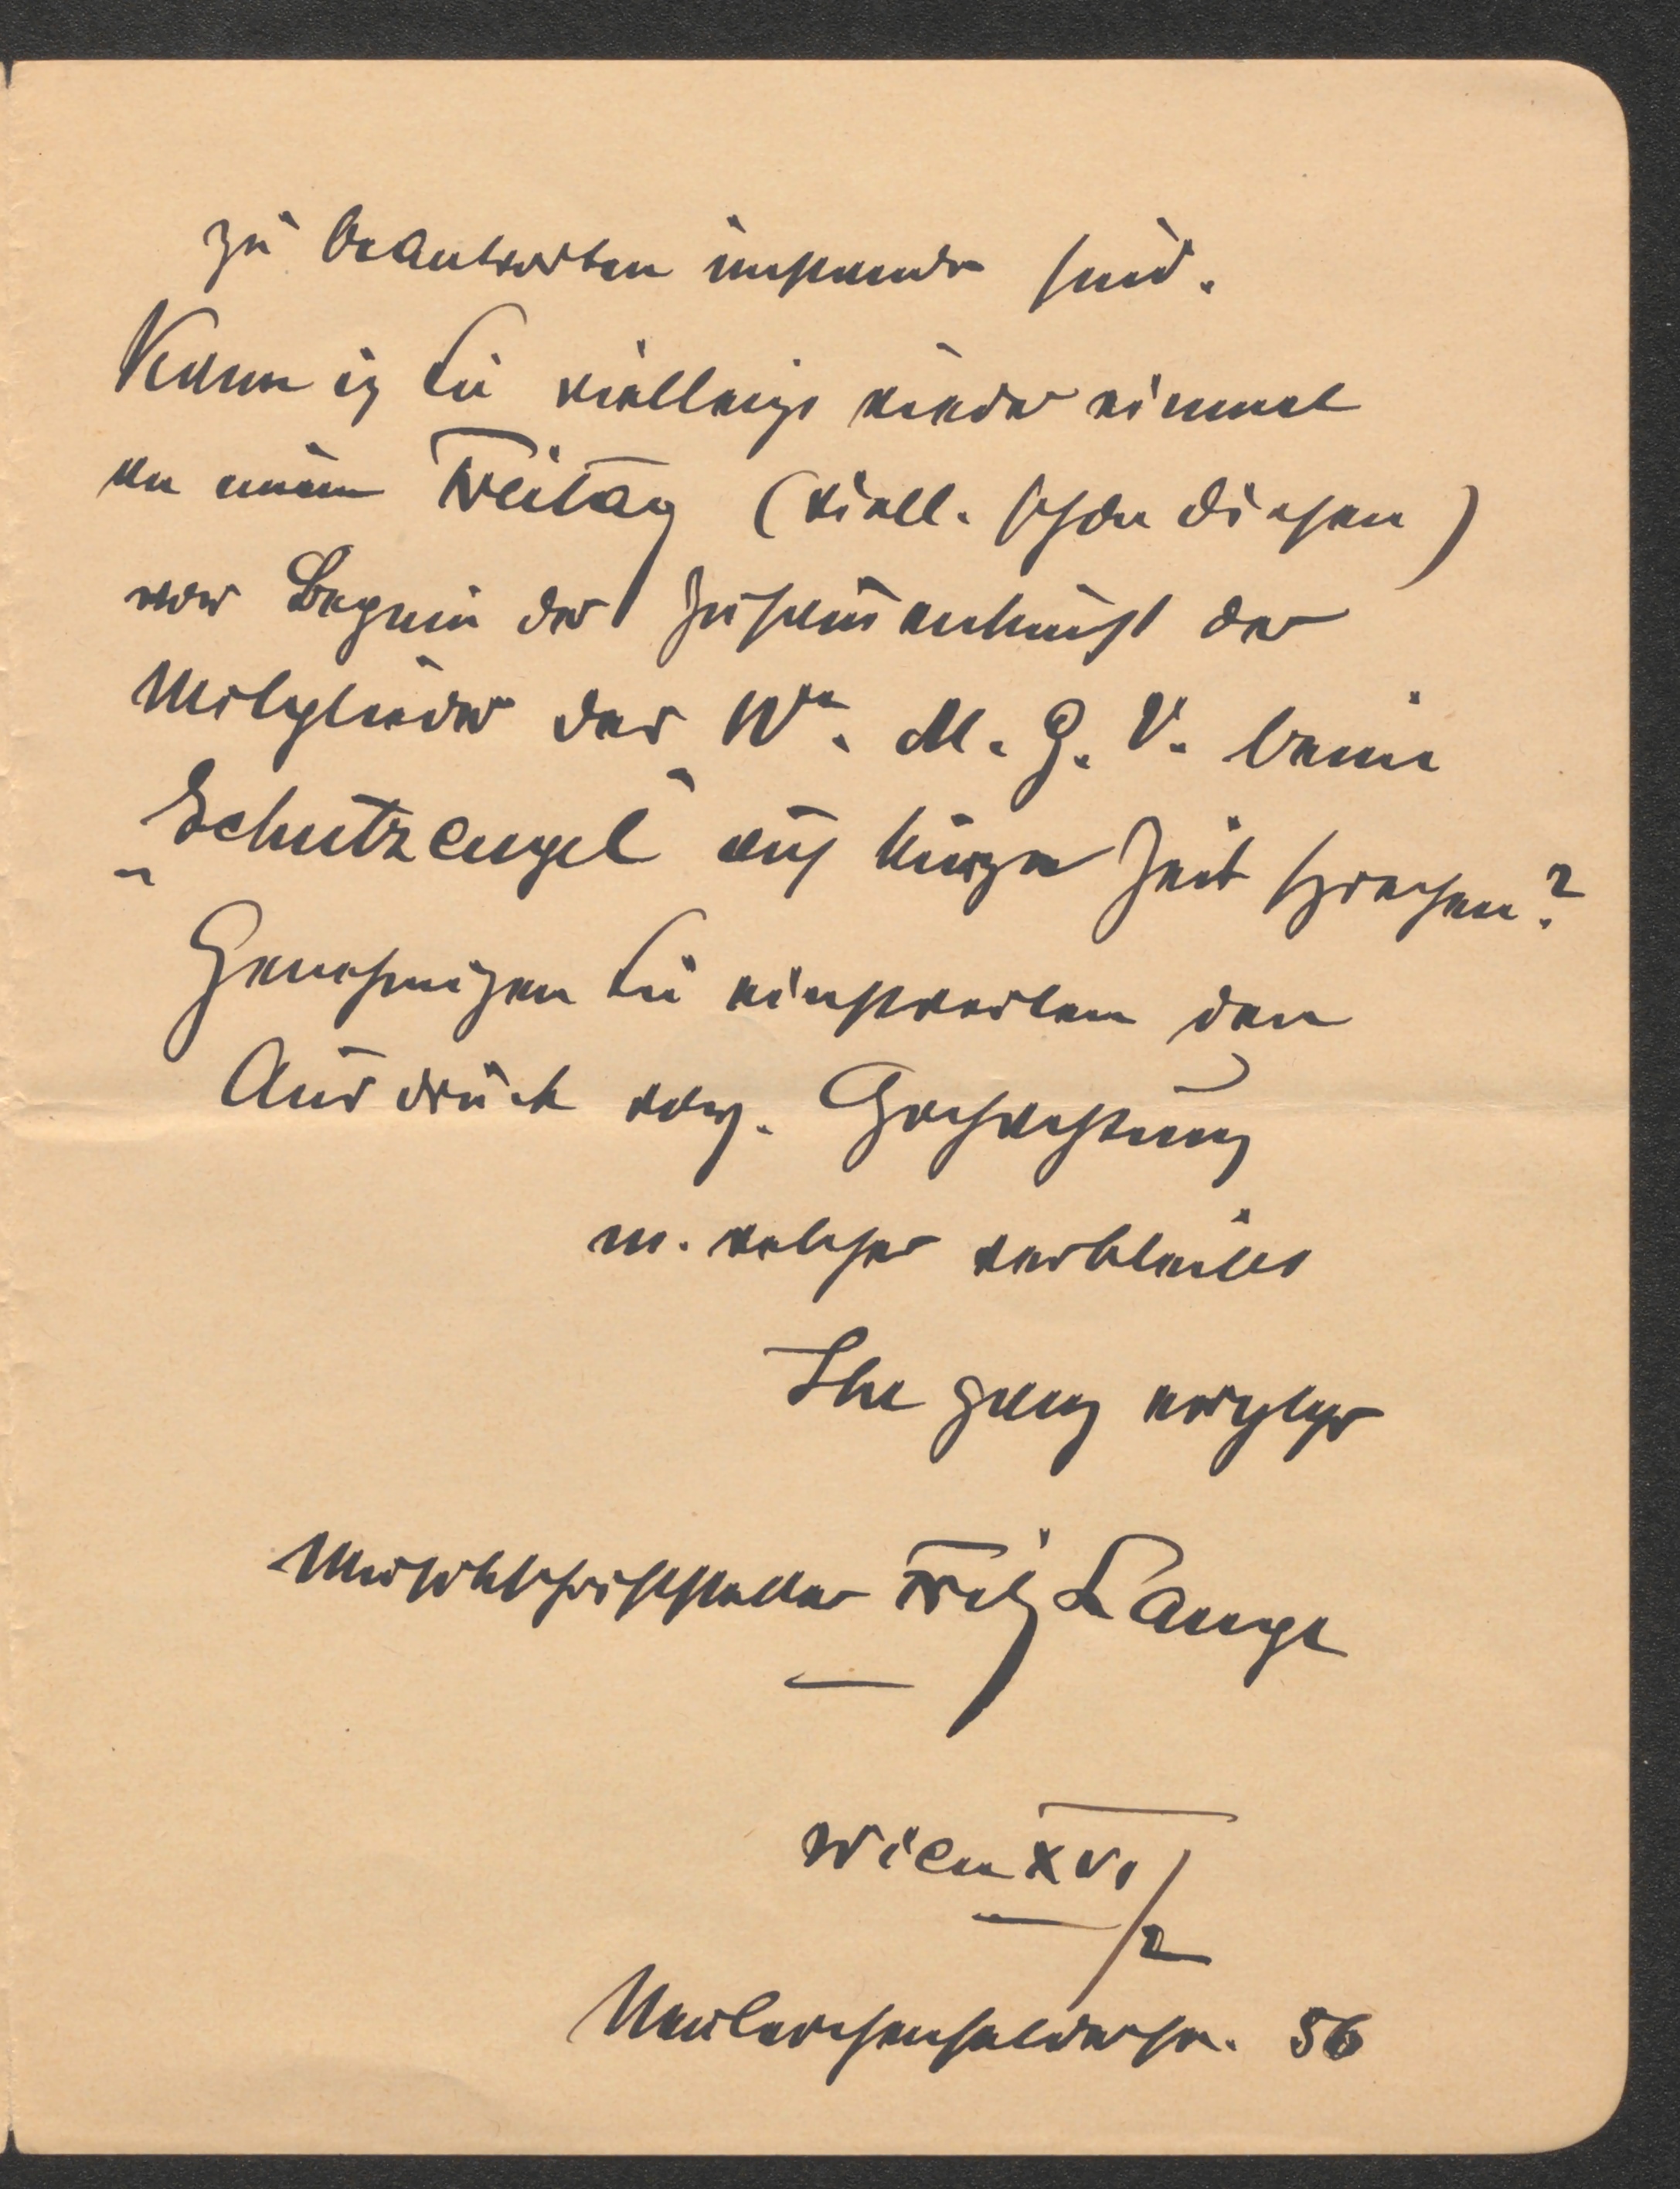 zu beantworten imstande sind.
Kann ich Sie vielleicht wieder einmal
an einem Freitag (viell. schon diesen)
vor Beginn der Zusam̅enkunft der
Mitglieder des Wr. M. G. V. beim
„Schutzengel“ auf kurze Zeit sprechen?
Genehmigen Sie einstweilen den
Ausdruck vorz. Hochachtung
m. welcher verbleibt
Ihr ganz ergebener
Musikschriftsteller Fritz Lange
Wien XVI/2
Neulerchenfelderstr. 56